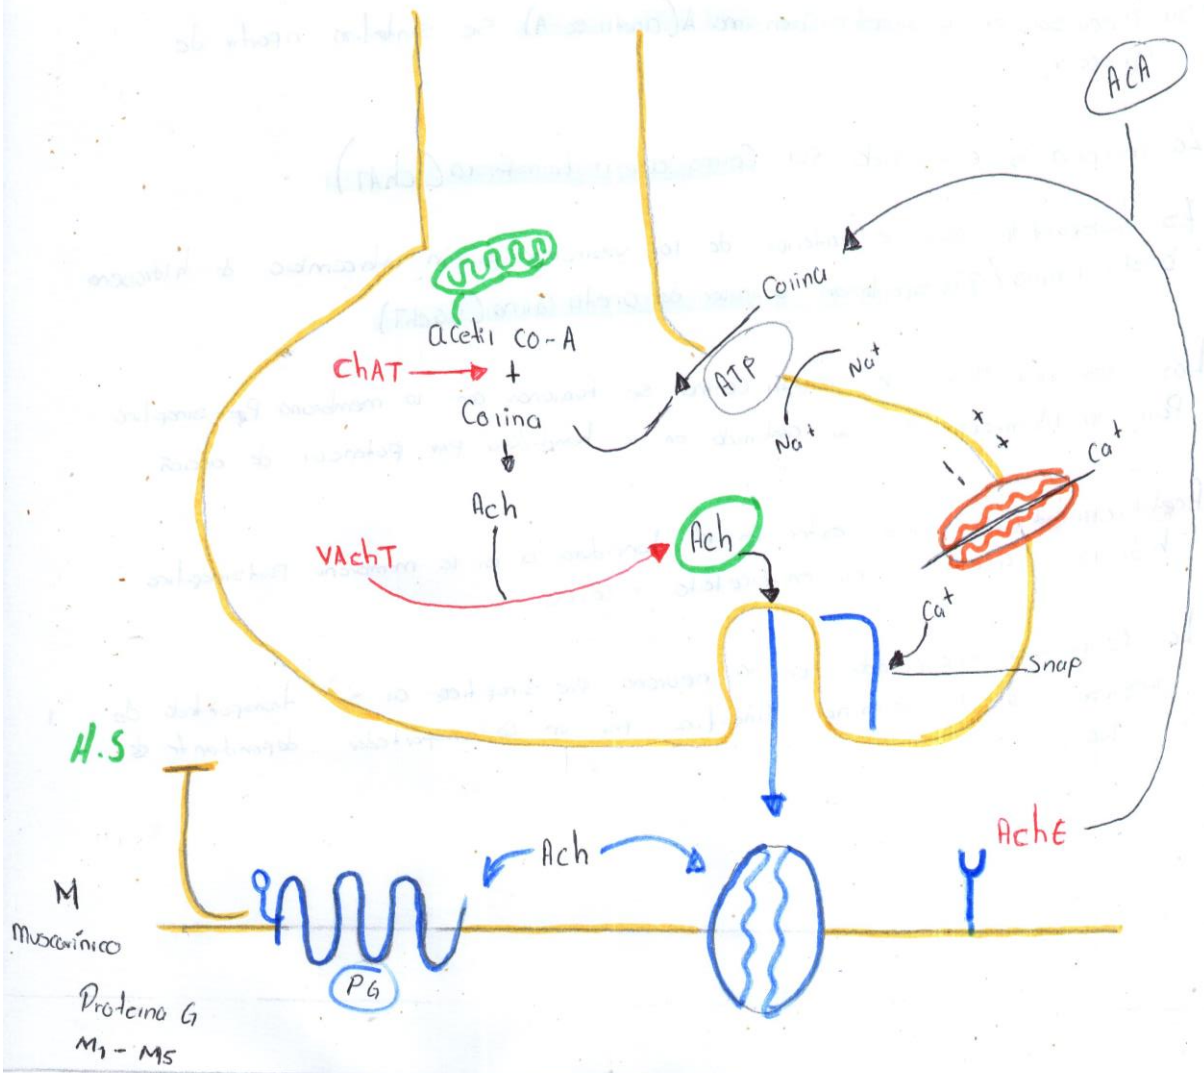 AcA
Colina
acetil CO-A
ChAT
+
ATP
Na+
Colina
Na+
+
+
Ca+
Ach
Ach
VAchT
Ca+
Snap
H.S
AchE
Ach
M
Muscarínico
PG
Proteina G
M1 - M5